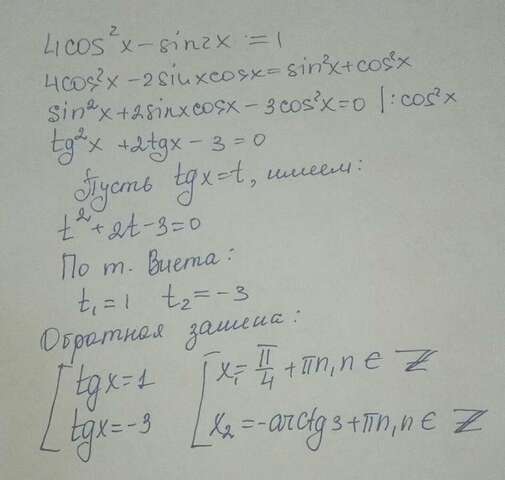 4cos²x - sin2x = 1
4cos²x - 2sinxcosx = sin²x + cos²x
sin²x + 2sinxcosx - 3cos²x = 0 |: cos²x
tg²x + 2tgx - 3 = 0
Пусть tgx = t, имеем:
t² + 2t - 3 = 0
По т. Виета:
t₁ = 1 t₂ = -3
Обратная замена:
[ tgx = 1 [ x₁ = π/4 + πn, n ∈ Z
tgx = -3 x₂ = -arctg3 + πn, n ∈ Z